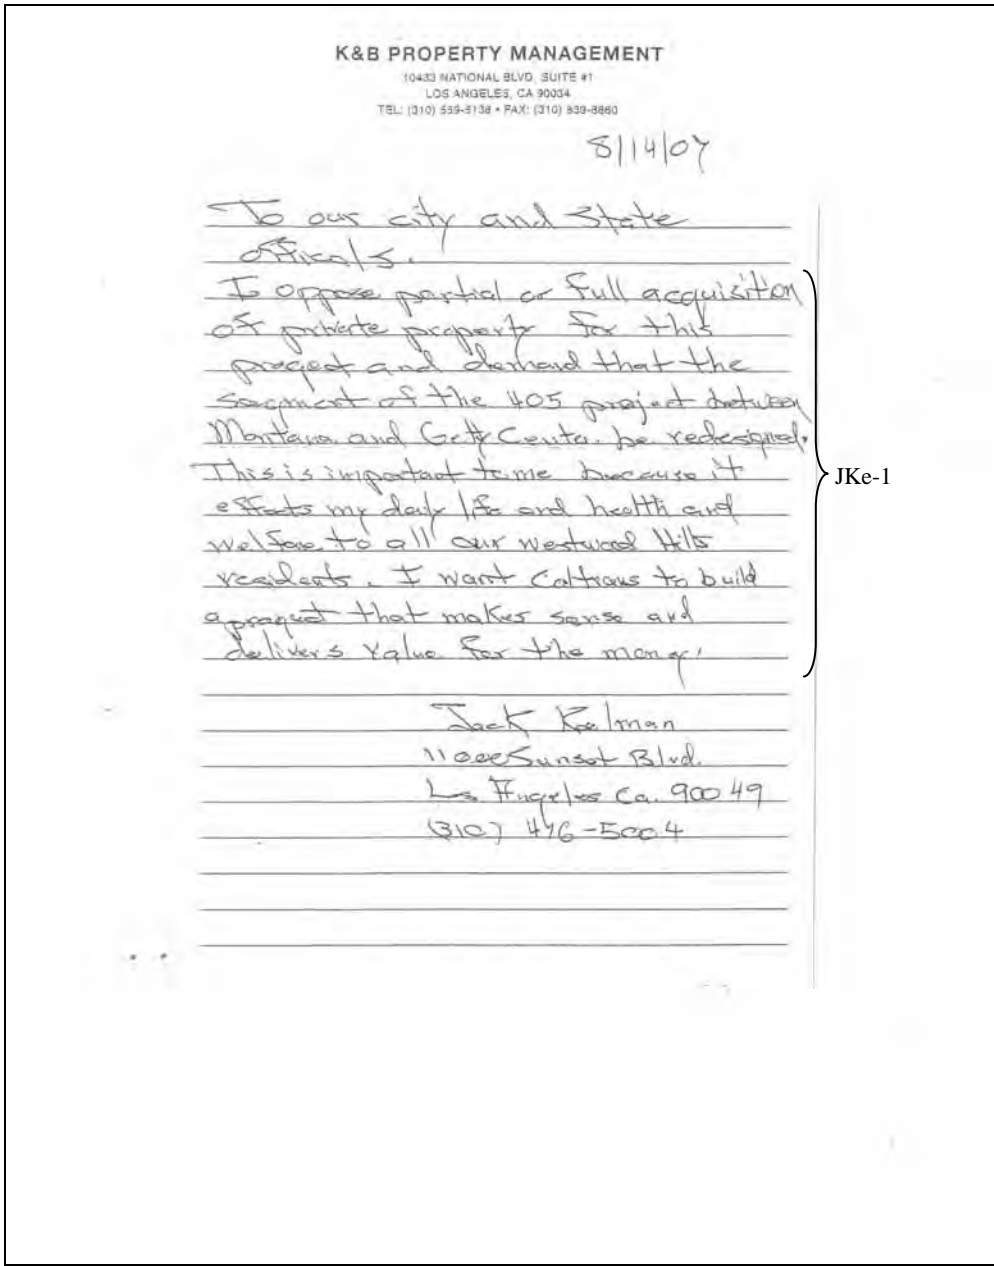 K&B PROPERTY MANAGEMENT
10433 NATIONAL BLVD. SUITE #1
LOS ANGELES, CA 90034
TEL: (310) 559-5138 • FAX: (310) 839-8860
8/14/07
To our city and State
officals.
I oppose partial or full acquisition
of private property for this
project and demand that the
segment of the 405 project between
Montana and Getty Center be redesigned.
This is important to me because it
effects my daily life and health and
welfare to all our westwood Hills
residents. I want Caltrans to build
a project that makes sense and
delivers value for the money.
JKe-1
Jack Kelman
11000 Sunset Blvd.
Los Angeles Ca. 90049
(310) 476-5004